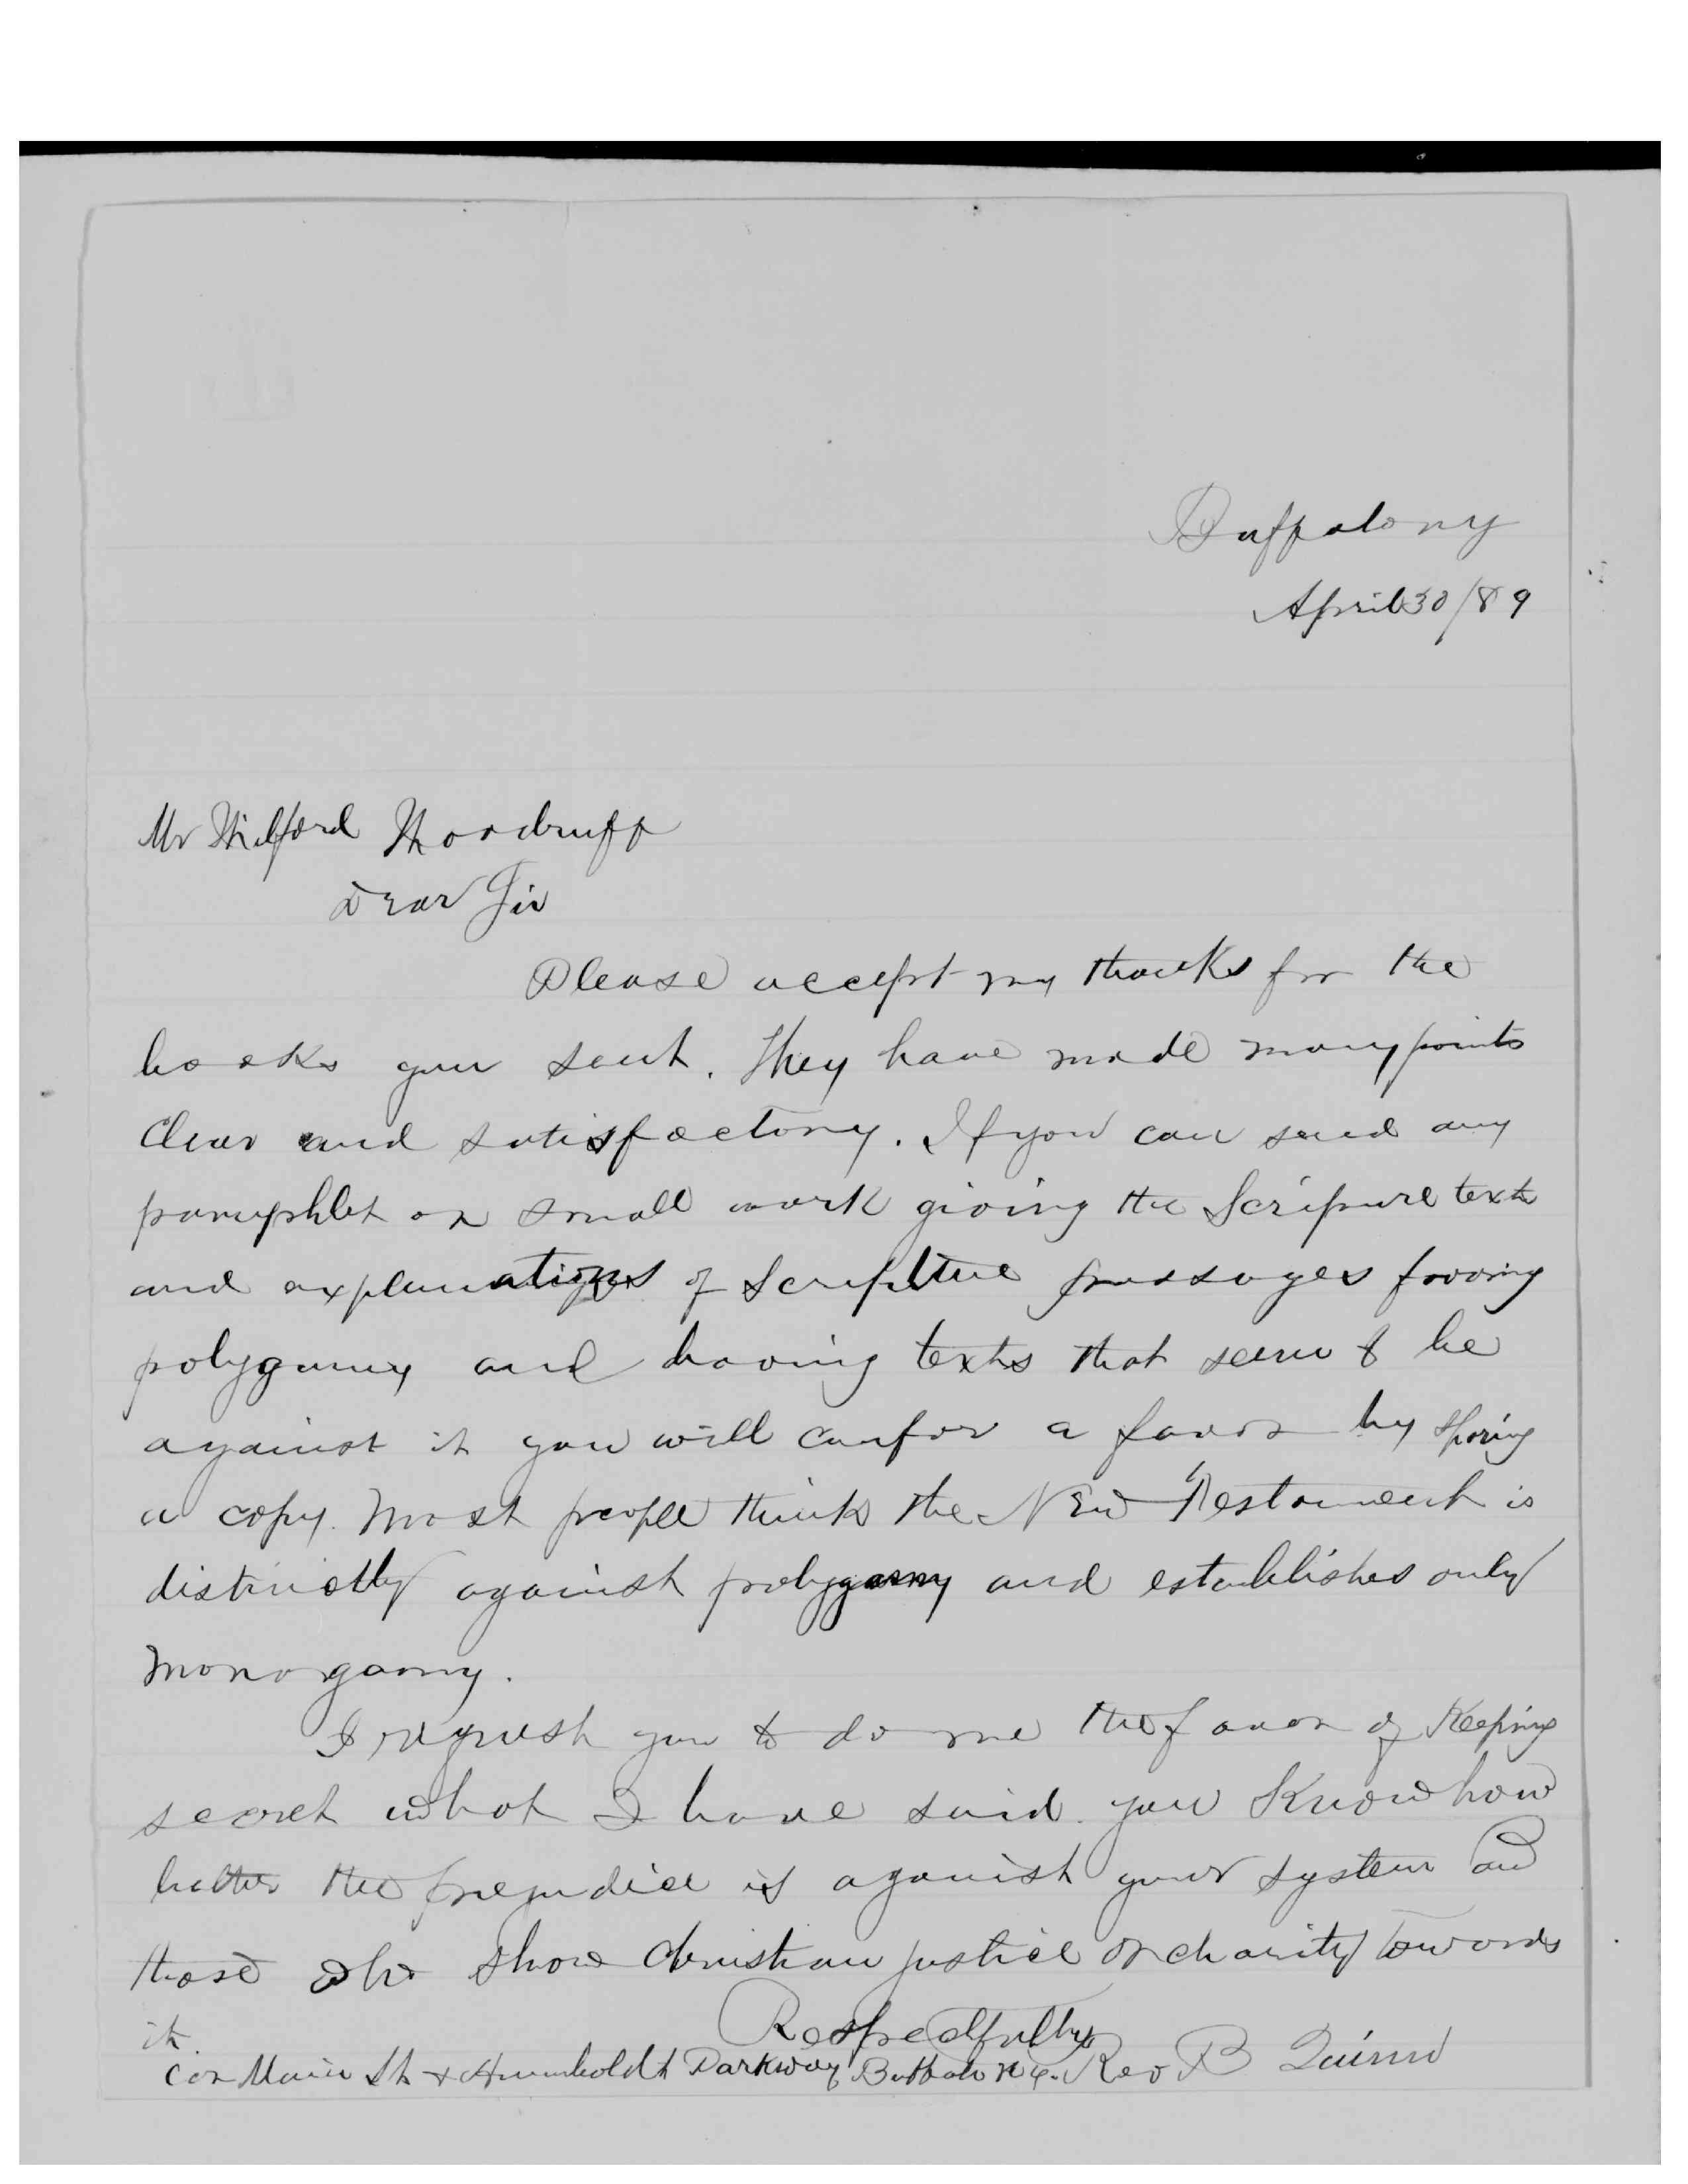 Buffalo NY
April 30/89
Mr Wilford Woodruff
Dear Sir
Please accept my thanks for the
books you sent. They have made many points
clear and satisfactory. If you can send any
pamphlet or small work giving the Scripure texts
and explanations of Scripture passages favoring
polygamy and having texts that seem to be
against it you will confer a favor by sparing
a copy. Most people think the New Testament is
distinctly against polygamy and establishes only
monogamy.
I request you to do me the favor of Keeping
secret what I have said. you Know how
bitter the prejudice is against your system and
those who show Christian justice or charity towards
it.
Respectfully
Cor Main St & Humboldt Parkway Buffalo N.Y. Rev B Quinn